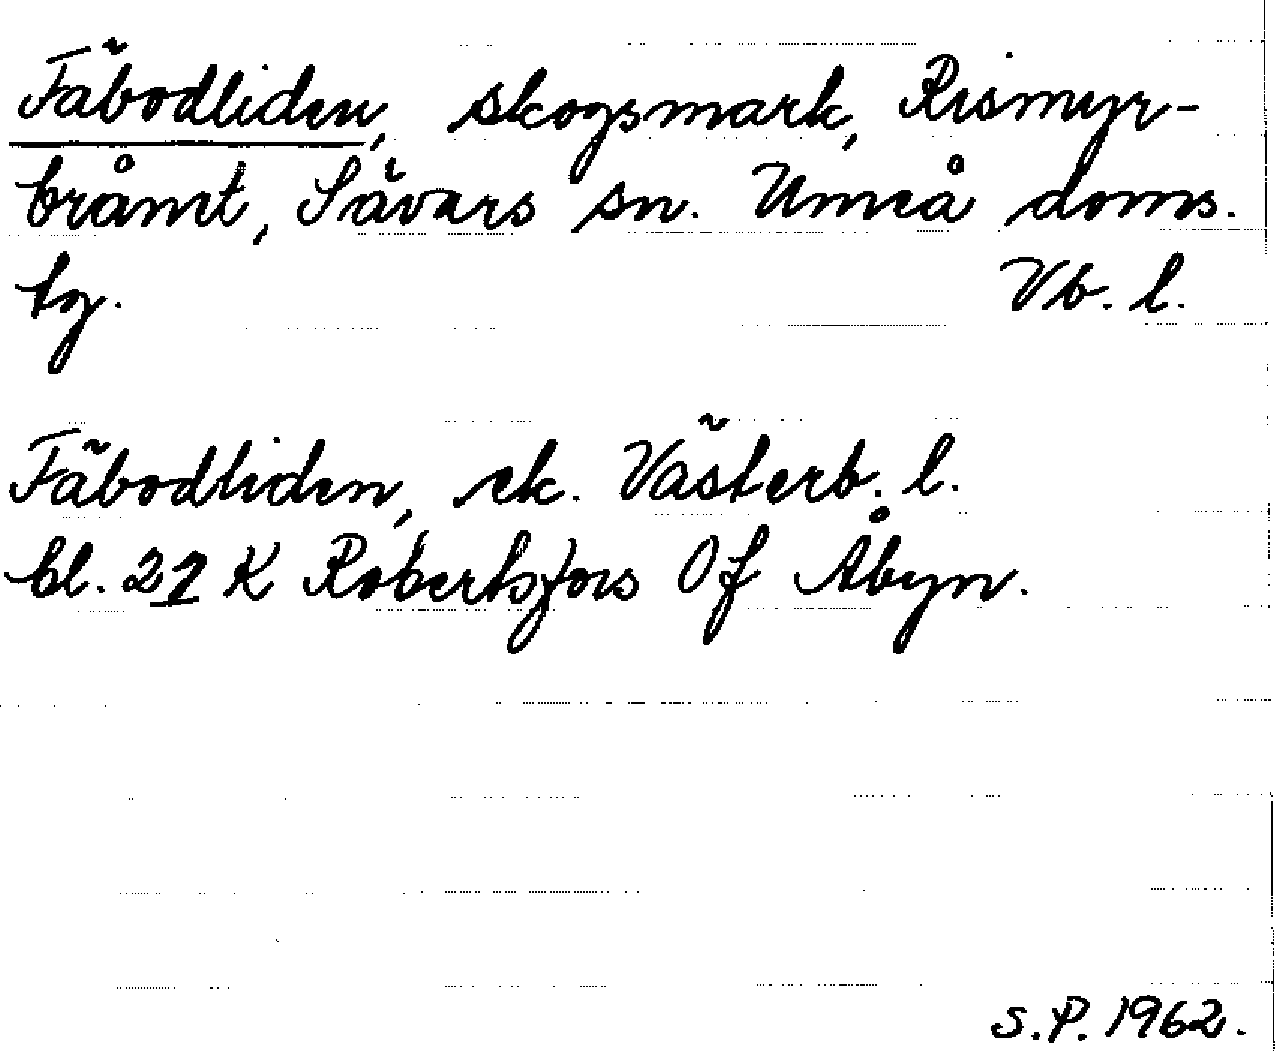 Fäbodliden, skogsmark, Rismyr-
bränt, Sävars sn. Umeå doms.
tg. Vb. l.
Fäbodliden, ek. Västerb. l.
bl. 21 K Robertsfors 0f Åbyn.
S.P. 1962.